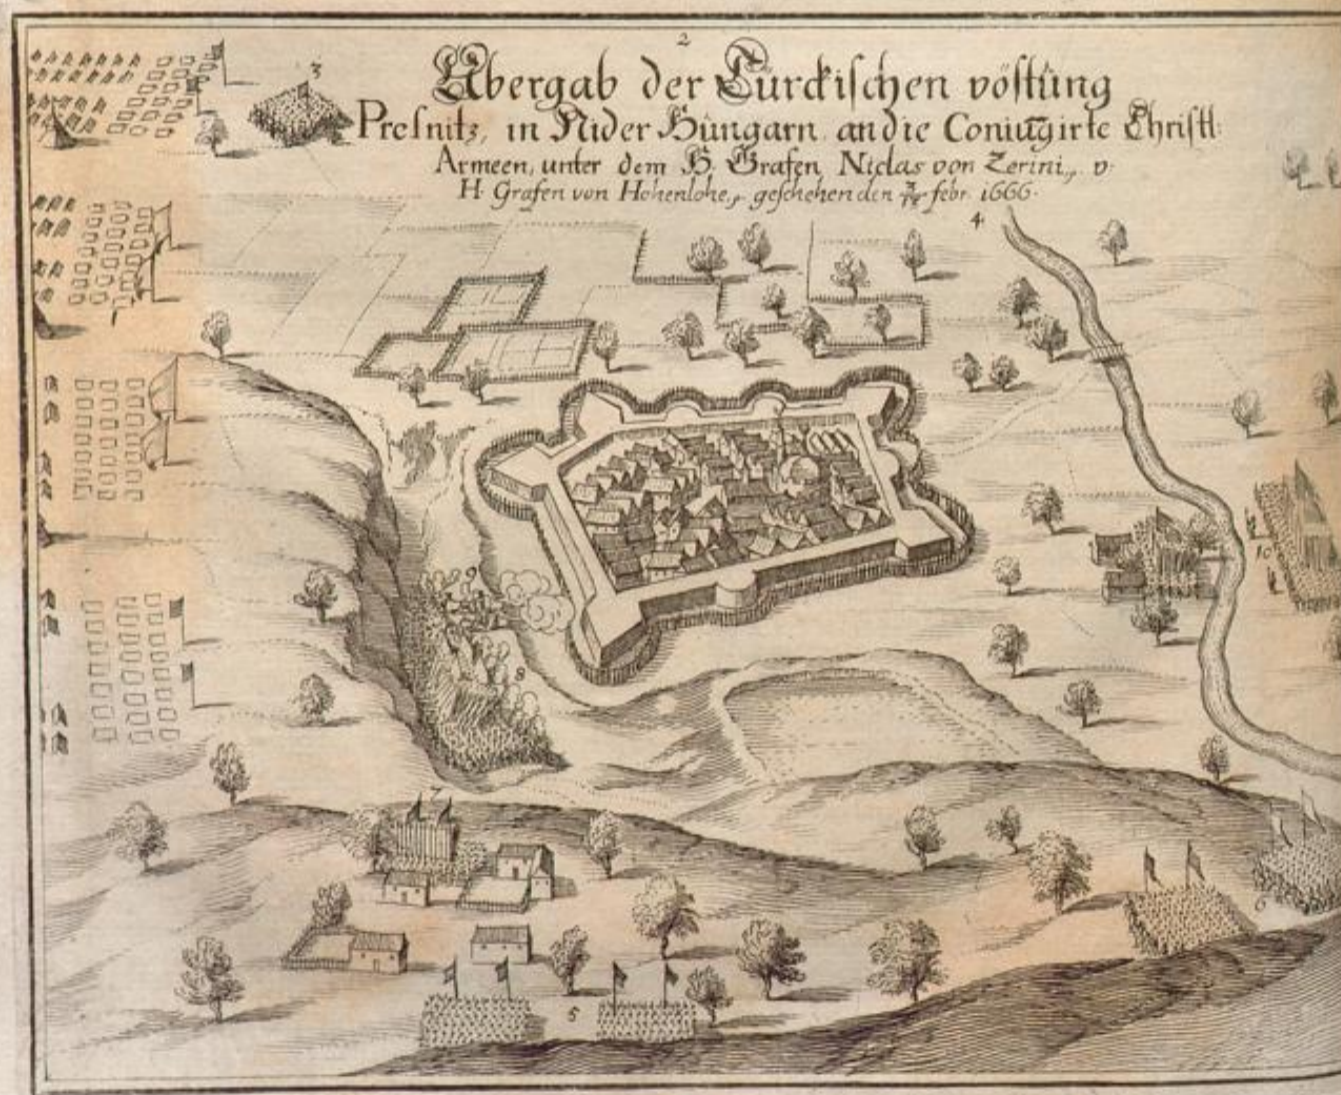 2
Übergab der Türckischen vöstüng
Presnitz, in Nider Hüngarn an die Coniugirte Christl:
Armeen, unter dem H. Grafen Niclas von Zerini, v.
H. Grafen von Hohenlohe, geschehen den febr. 1666.
3
4.
9
10
8
7
6
5